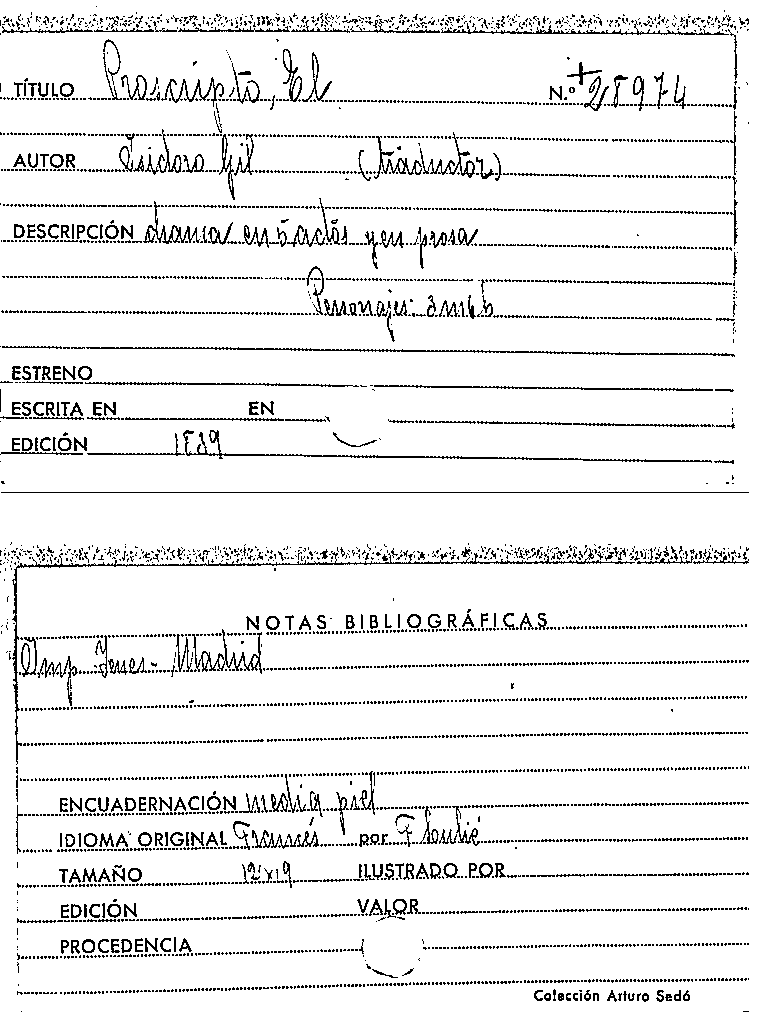 TÍTULO Proscripto, El N.º +28974
AUTOR Isidoro Gil (traductor)
DESCRIPCIÓN drama en 5 actos y en prosa
Personajes: 3 m 6 h
ESTRENO
ESCRITA EN EN
EDICIÓN 1839
NOTAS BIBLIOGRÁFICAS
Imp. Yenes - Madrid
ENCUADERNACIÓN media piel
IDIOMA ORIGINAL Francés por F Soulié
TAMAÑO 12x19 ILUSTRADO POR
EDICIÓN VALOR
PROCEDENCIA
Colección Arturo Sedó